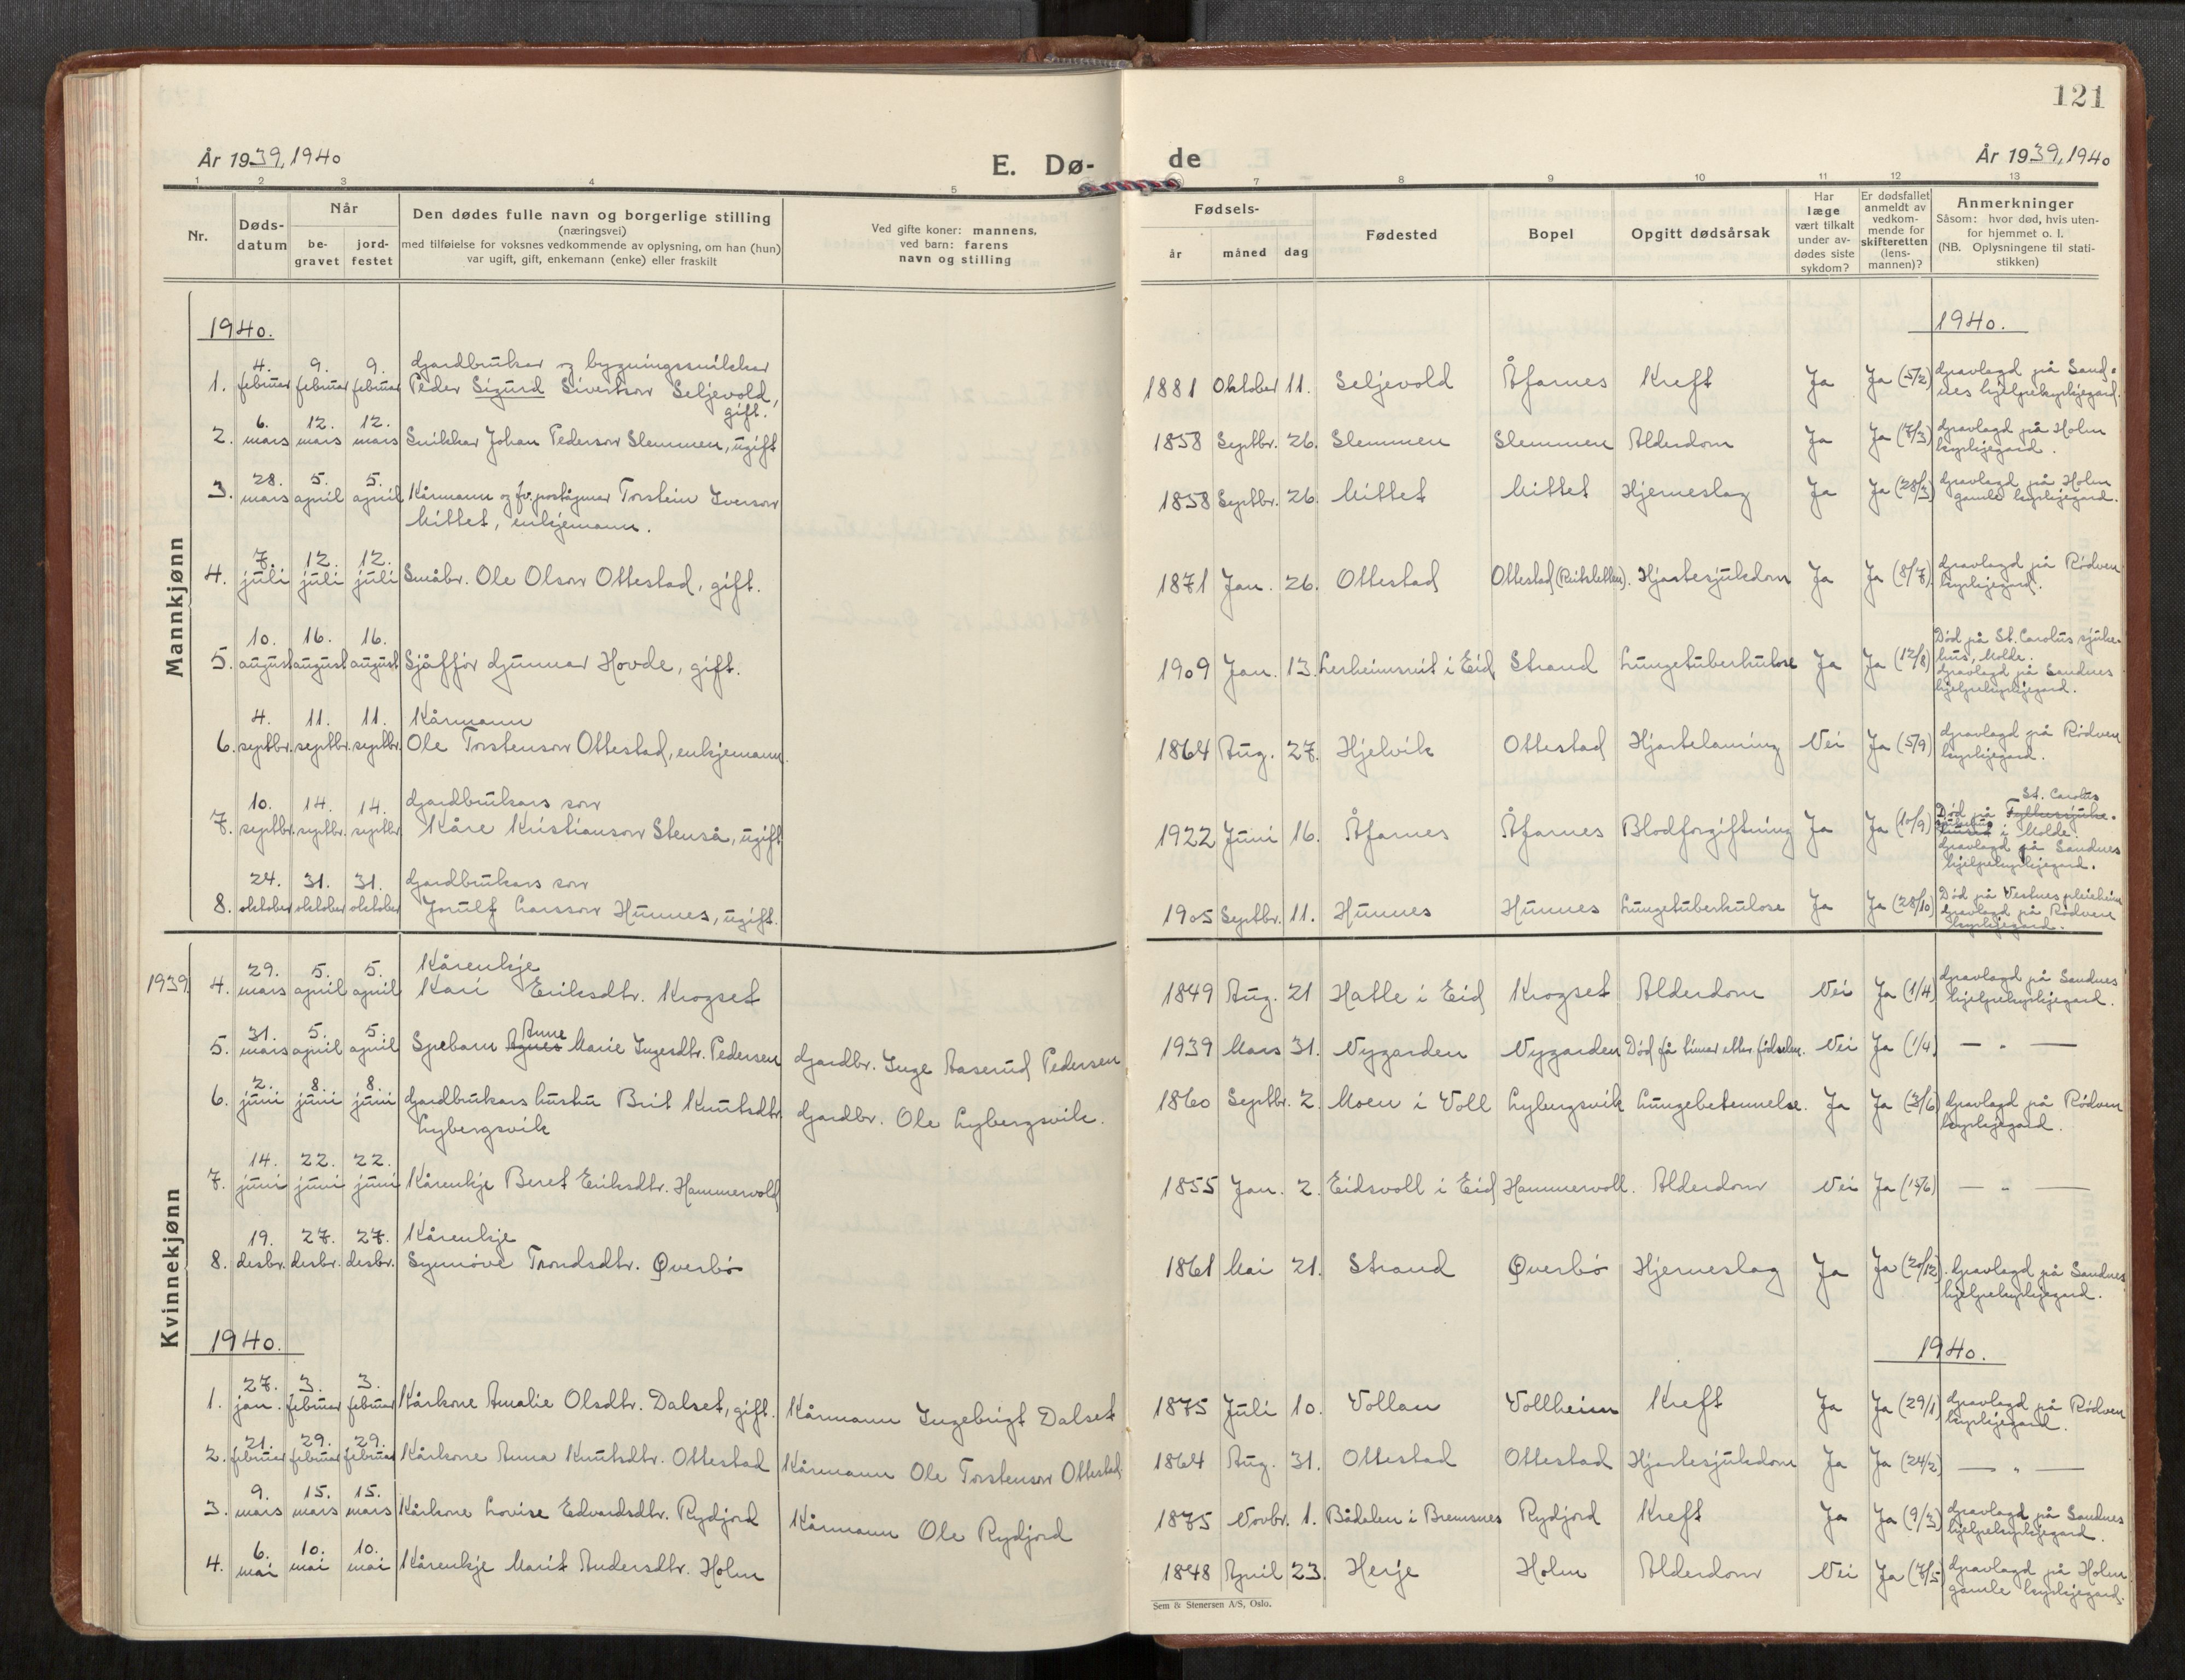 121
År 1939, 1940
E. Dø-
de
År 1939, 1940
1 2 3 4 5 7 8 9 10 11 12 13
Nr.
Døds-datum
Når
be-gravet
jord-festet
Den dødes fulle navn og borgerlige stilling
(næringsvei)
med tilføielse for voksnes vedkommende av oplysning, om han (hun)
var ugift, gift, enkemann (enke) eller fraskilt
Ved gifte koner: mannens,
ved barn: farens
navn og stilling
Fødsels-
år måned dag
Fødested
Bopel
Opgitt dødsårsak
Har læge vært tilkalt under av-dødes siste sykdom?
Er dødsfallet anmeldt av vedkom-mende for skifteretten (lens-mannen)?
Anmerkninger
Såsom: hvor død, hvis uten-
for hjemmet o. l.
(NB. Oplysningene til stati-
stikken)
Mannkjønn
1940.
1940.
1. 4. februar 9. februar 9. februar Gardbrukar og bygningssnikkar
Peder Sigurd Sivertson Seljevold,
gift.
1881 Oktober 11. Seljevold Åfarnes Kreft Ja Ja (5/2) Gravlagd på Sand-
nes hjelpekyrkjegard.
2. 6. mars 12. mars 12. mars Snikkar Johan Pederson Slemmen, ugift
1858 Septbr. 26. Slemmen Slemmen Alderdom Ja Ja (7/3) Gravlagd på Holm
kyrkjegard.
3. 28. mars 5. april 5. april Kårmann og fv. poståpnar Torstein Iverson
Mittet, enkjemann.
1858 Septbr. 26. Mittet Mittet Hjerneslag Ja Ja (28/3) Gravlagd på Holm
gamle kyrkjegard.
4. 7. juli 12. juli 12. juli Småbr. Ole Olson Ottestad, gift.
1871 Jan. 26. Ottestad Ottestad (Reitsletten). Hjartesjukdom Ja Ja (8/7) Gravlagd på Rødven
kyrkjegard.
5. 10. august 16. august 16. august Sjåffør Gunnar Hovde, gift.
1909 Jan. 13. Lerheimsreit i Eid Strand Lungetuberkulose Ja Ja (12/8) Død på St. Carolus sjuke-
hus, Molde.
Gravlagd på Sandnes
hjelpekyrkjegard.
6. 4. septbr. 11. septbr. 11. septbr. Kårmann
Ole Torstenson Ottestad, enkjemann.
1864 Aug. 27. Hjelvik Ottestad Hjartelaming Nei Ja (5/9) Gravlagd på Rødven
kyrkjegard.
7. 10. septbr. 14. septbr. 14. septbr. Gardbrukars son
Kåre Kristianson Stenså, ugift
1922 Juni 16. Åfarnes Åfarnes Blodforgiftning Ja Ja (10/9) St. Carolus
Død på Fylkessjuke-
huset i Molde.
Gravlagd på Sandnes
hjelpekyrkjegard.
8. 24. oktober 31. oktober 31. oktober Gardbrukars son
Jorulf Larsson Hunnes, ugift.
1905 Septbr. 11. Hunnes Hunnes Lungetuberkulose Ja Ja (28/10) Død på Vestnes pleieheim
Gravlagd på Rødven
kyrkjegard.
Kvinnekjønn
1939 4. 29. mars 5. april 5. april Kårenkje
Kari Eriksdtr. Krogset
1849 Aug. 21 Hatle i Eid Krogset Alderdom Nei Ja (1/4) Gravlagd på Sandnes
hjelpekyrkjegard.
5. 31. mars 5. april 5. april Spebarn Agnes Anne Marie Ingesdtr. Pedersen Gardbr. Inge Aaserud Pedersen
1939 Mars 31. Nygarden Nygarden Død få timer etter fødselen. Nei Ja (1/4) — „ —
6. 2. juni 8. juni 8. juni Gardbrukars hustru Brit Knutsdtr.
Lybergsvik
Gardbr. Ole Lybergsvik.
1860 Septbr. 2. Moen i Voll Lybergsvik Lungebetennelse. Ja Ja (3/6) Gravlagd på Rødven
kyrkjegard.
7. 14. juni 22. juni 22. juni Kårenkje Beret Eriksdtr. Hammervold
1855 Jan. 2. Eidsvoll i Eid Hammervoll. Alderdom Nei Ja (15/6) — „ —
8. 19. desbr. 27. desbr. 27. desbr. Kårenkje
Synnøve Trondsdtr. Øverbø
1861 Mai 21. Strand Øverbø Hjerneslag Ja Ja (20/12). Gravlagd på Sandnes
hjelpekyrkjegard.
1940.
1940.
1. 27. jan. 3. februar 3. februar Kårkone Amalie Olsdtr. Dalset, gift. Kårmann Ingebrigt Dalset
1875 Juli 10. Vollan Vollheim Kreft Ja Ja (29/1) Gravlagd på Rødven
kyrkjegard.
2. 21. februar 29. februar 29. februar Kårkone Anna Knutsdtr. Ottestad Kårmann Ole Torstenson Ottestad
1864 Aug. 31. Ottestad Ottestad Hjartesjukdom Ja Ja (24/2) — „ —
3. 9. mars 15. mars 15. mars Kårkone Lovise Edvardsdtr. Rydjord Kårmann Ole Rydjord
1875 Novbr. 1. Bådalen i Bremsnes Rydjord Kreft Ja Ja (9/3) Gravlagd på Sandnes
hjelpekyrkjegard.
4. 6. mai 10. mai 10. mai Kårenkje Marit Andersdtr. Holm
1848 April 23. Herje Holm Alderdom Nei Ja (7/5) Gravlagd på Holm
gamle kyrkjegard.
Sem & Stenersen A/S, Oslo.